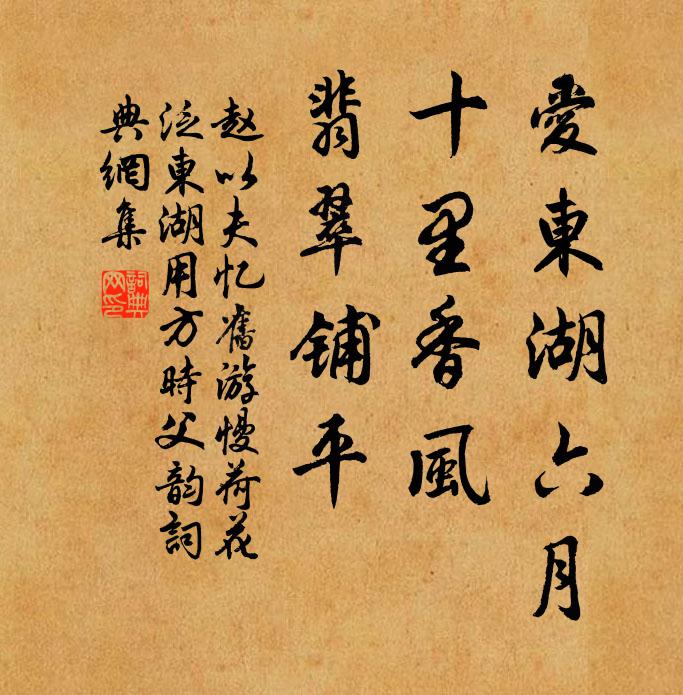 愛東湖六月
十里香風
翡翠铺平
赵以夫忆舊游慢荷花
泛東湖用方時父韵詞
典網集
詞典
网印